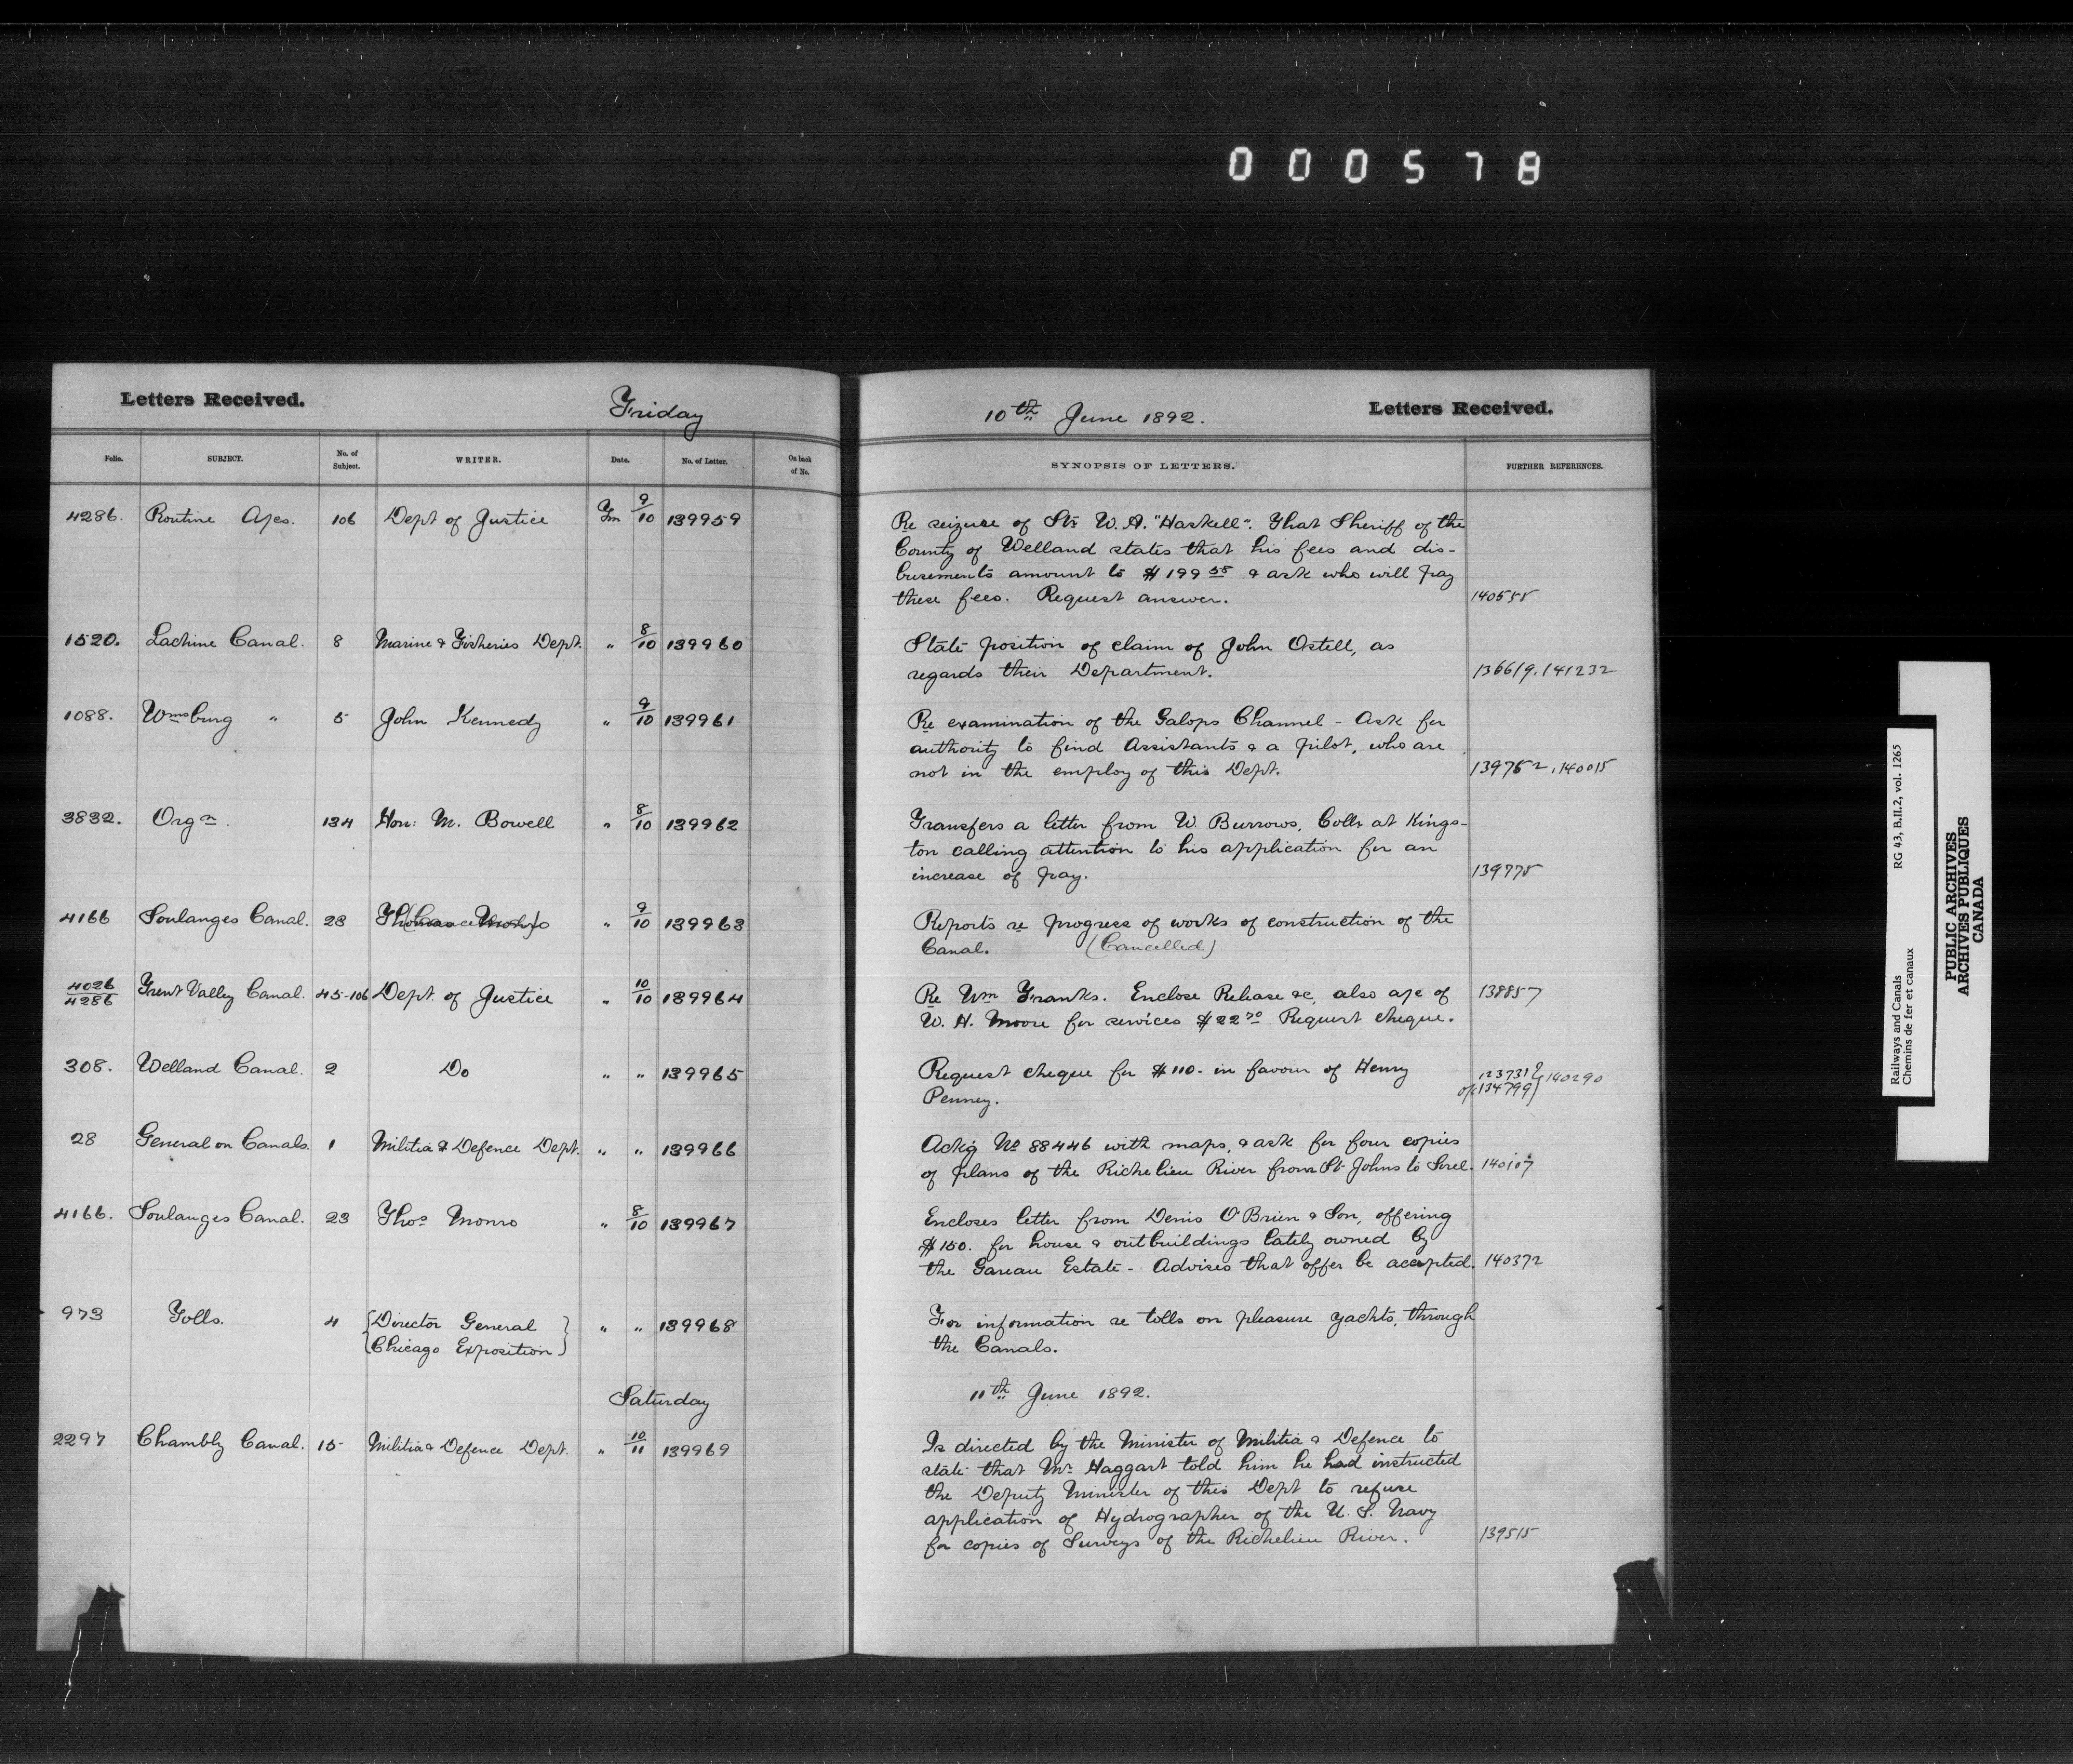 000578
Letters Received.
Friday
10th June 1892.
Letters Received.
Folio. SUBJECT. No. of Subject. WRITER. Date. No. of Letter. On back of No. SYNOPSIS OF LETTERS. FURTHER REFERENCES.
4286. Routine 106 Dept of Justice 9/10 139959
Re seizure of Str W. A. "Haskell". That Sheriff of the
County of Welland states that his fees and dis-
bursements amount to $199 & ask who will pay
these fees. Request answer. 140555
1520. Lachine Canal. 8 Marine & Fisheries Dept. " 8/10 139960
State position of claim of John Ostell, as
regards their Department. 136619, 141232
1088. Wmsburg " 5 John Kennedy " 9/10 139961
Re examination of the Galops Channel - Ask for
authority to find Assistants & a pilot, who are
not in the employ of this Dept. 139752, 140015
3832. Orgn. 134 Hon: M. Bowell " 8/10 139962
Transfers a letter from W. Burrows, Collr at Kings-
ton calling attention to his application for an
increase of pay. 139775
4166 Soulanges Canal. 23 " 9/10 139963
Reports re progress of works of construction of the
Canal. (Cancelled)
4026/4286 Trent Valley Canal. 45-106 Dept. of Justice " 10/10 139964
Re Wm Franks. Enclose Release &c, also a/c of 138857
W. H. Moore for services $22 70 Request cheque.
308. Welland Canal. 2 Do " " 139965
Request cheque for $110.- in favour of Henry
Penney. 123731 134799 } 140290
28 General on Canals. 1 Militia & Defence Dept. " " 139966
Ackg No 88446 with maps, & ask for four copies
of plans of the Richelieu River from St Johns to Sorel. 140107
4166. Soulanges Canal. 23 Thos Monro " 8/10 139967
Encloses letter from Denis O'Brien & Son, offering
$150. for house & outbuildings lately owned by
the Gareau Estate - Advises that offer be accepted. 140372
973 Tolls. 4 {Director General Chicago Exposition} " " 139968
For information re tolls on pleasure yachts, through
the Canals.
Saturday
11th June 1892.
2297 Chambly Canal. 15 Militia & Defence Dept. " 10/11 139969
Is directed by the Minister of Militia & Defence to
state that Mr Haggart told him he had instructed
the Deputy Minister of this Dept to refuse
application of Hydrographer of the U. S. Navy
for copies of Surveys of the Richelieu River. 139515
Railways and Canals RG 43, B.II.2, vol. 1265
Chemins de fer et canaux
PUBLIC ARCHIVES
ARCHIVES PUBLIQUES
CANADA